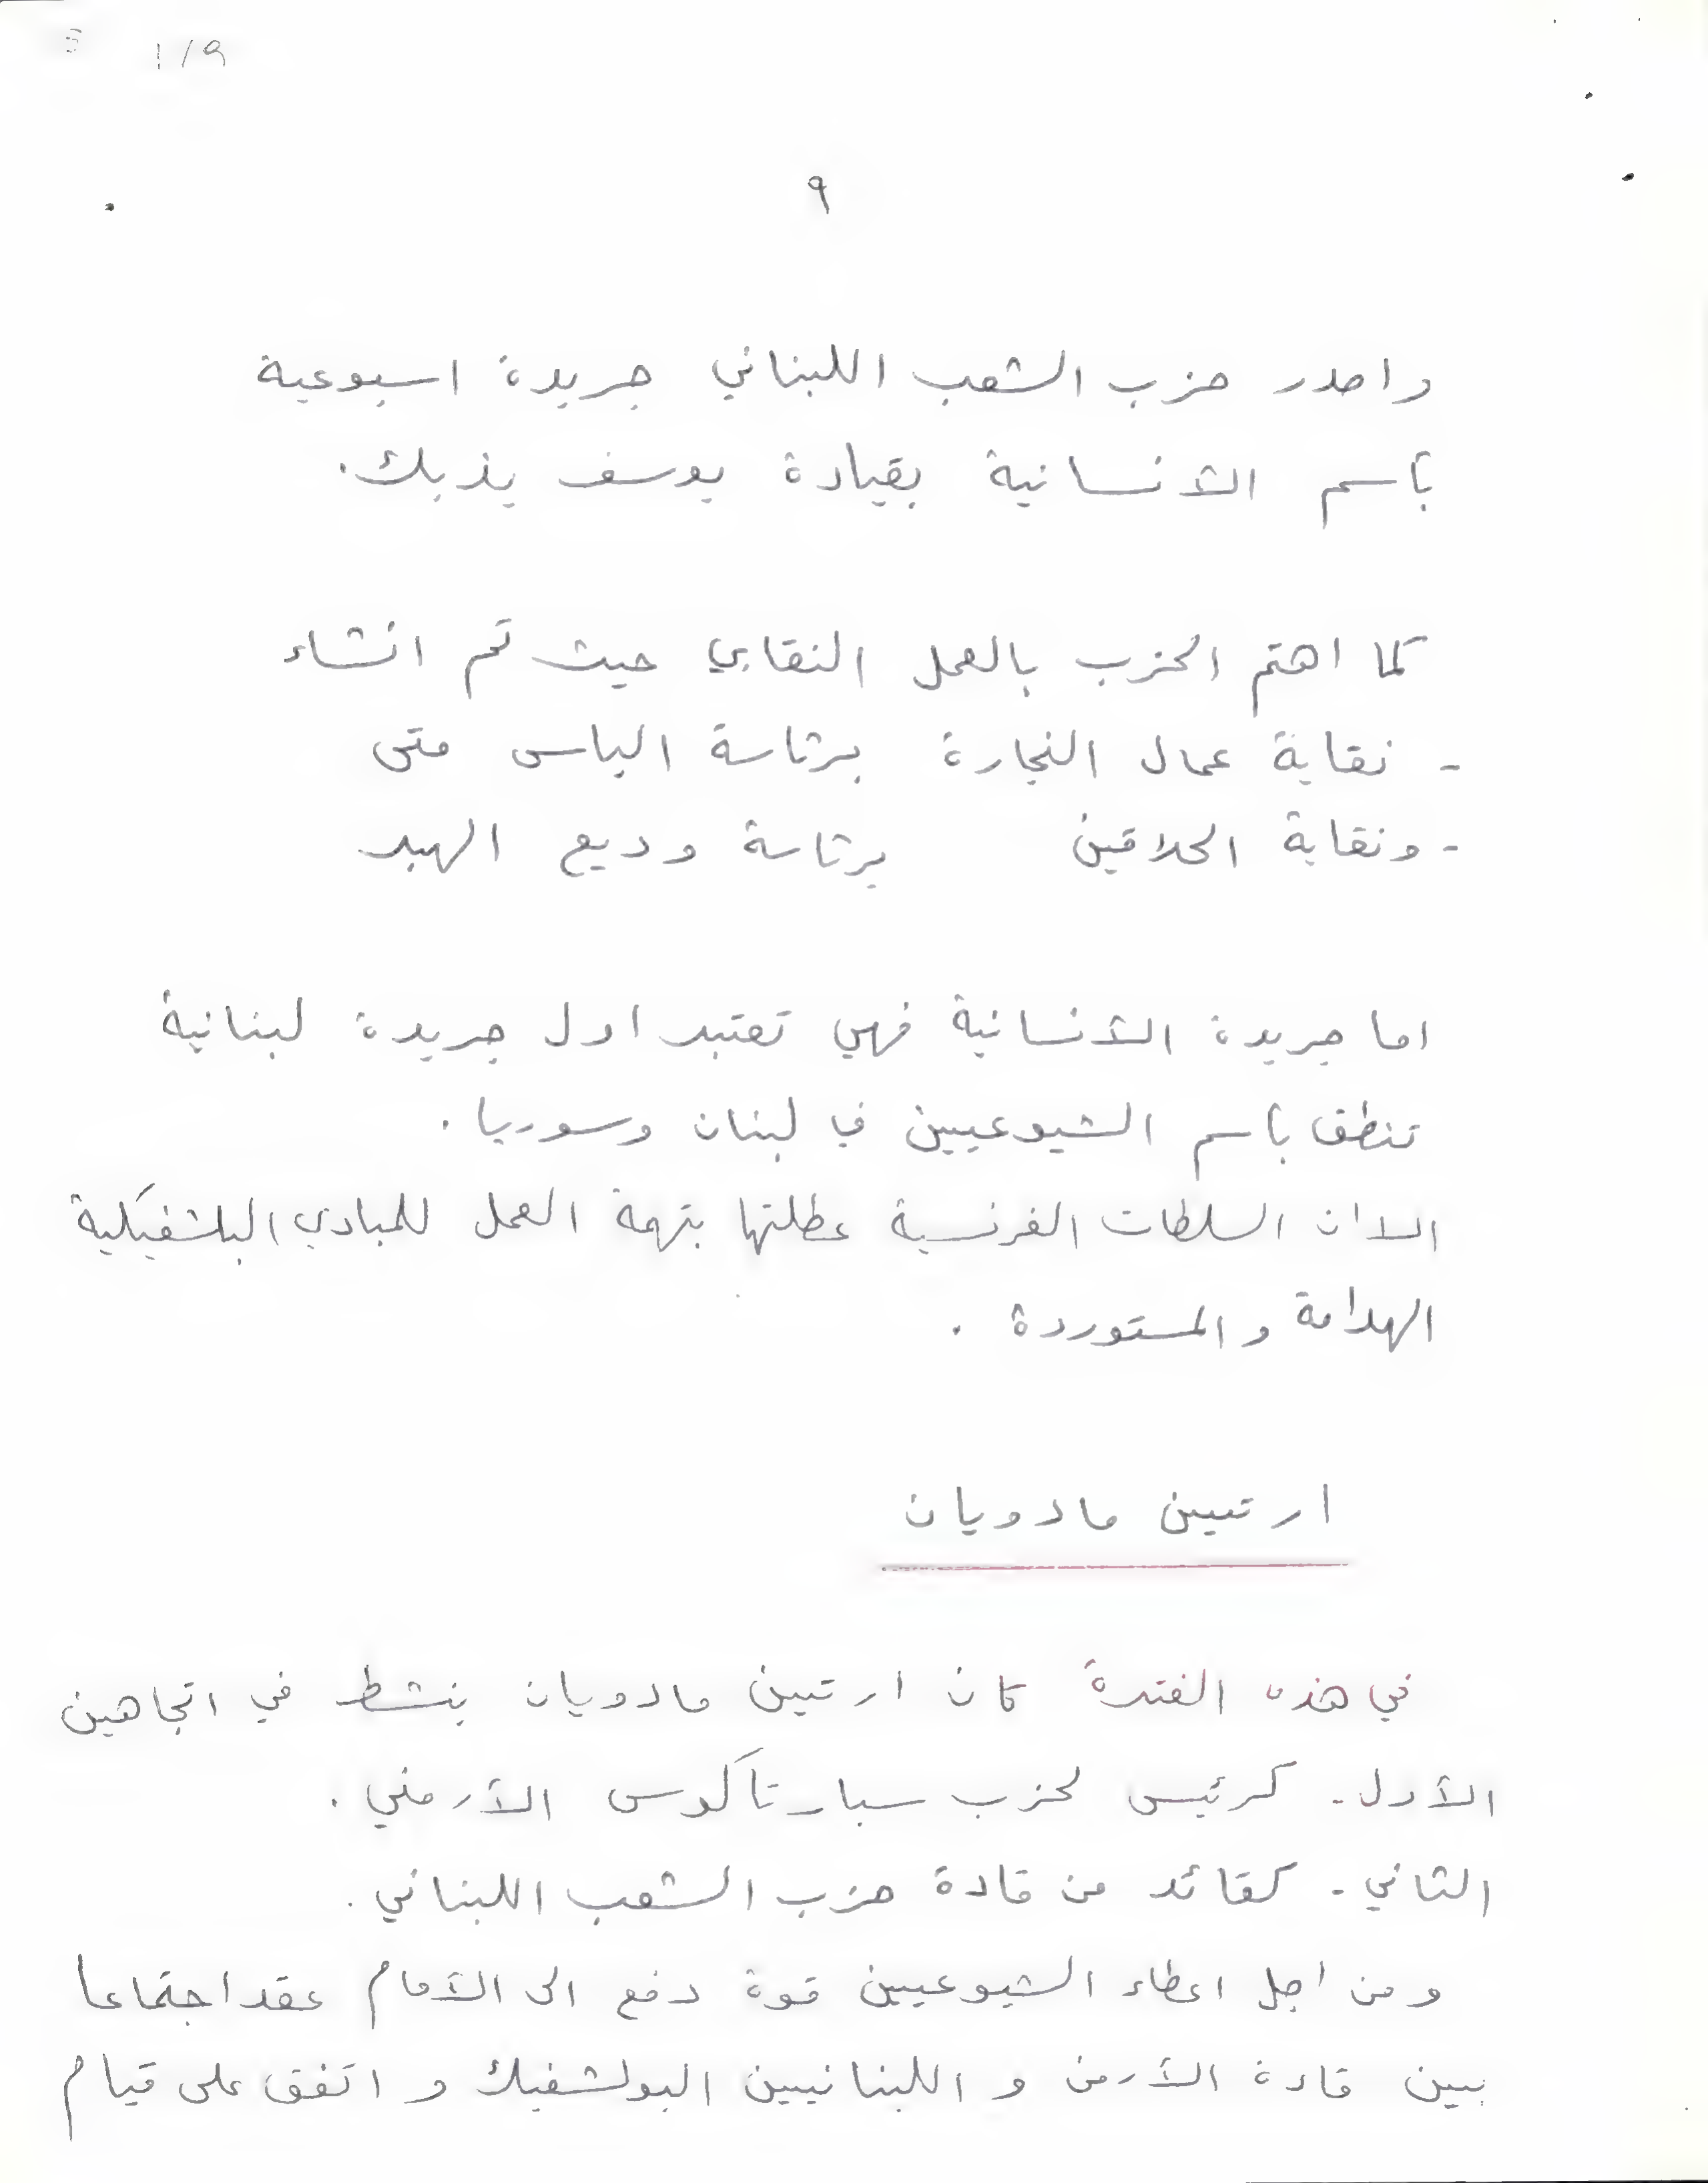 ١/٩
٩
واصدر حزب الشعب اللبناني جريدة اسبوعية
بأسم الأنسانية بقيادة يوسف يزبك.
كما اهتم الحزب بالعمل النقابي حيث تم انشاء
- نقابة عمال النجارة برئاسة الياس متى
- ونقابة الحلاقين برئاسة وديع الهبر
اما جريدة الأنسانية فهي تعتبر اول جريدة لبنانية
تنطق بأسم الشيوعيين في لبنان وسوريا.
الا ان السلطات الفرنسية عطلتها بتهمة العمل للمبادئ البلشفيكية
الهدامة والمستوردة.
ارتيين مادويان
في هذه الفترة كان ارتيين مادويان ينشط في اتجاهين
الأول - كرئيس لحزب سبارتاكوس الأرمني.
الثاني - كقائد من قادة حزب الشعب اللبناني.
ومن اجل اعطاء الشيوعيين قوة دفع الى الأمام عقد اجتماعا
بين قادة الأرمن و اللبنانيين البولشفيك و اتفق على قيام